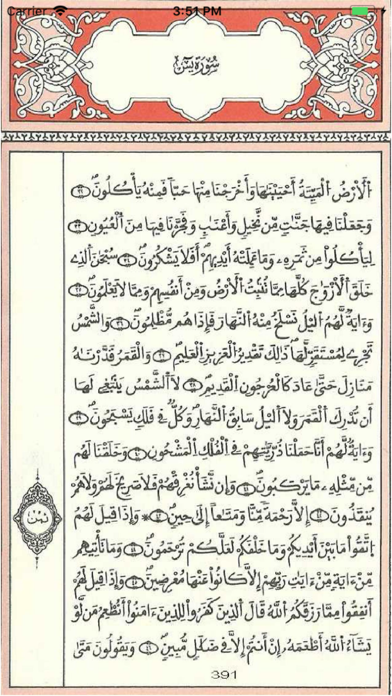 Carrier 3:51 PM
سُورَةُ يسٓ
اُ۬لْأَرْضُ اُ۬لْمَيِّتَةُ أَحْيَيْنَٰهَا وَأَخْرَجْنَا مِنْهَا حَبّٗا فَمِنْهُ يَأْكُلُونَۖ
وَجَعَلْنَا فِيهَا جَنَّٰتٖ مِّن نَّخِيلٖ وَأَعْنَٰبٖ وَفَجَّرْنَا فِيهَا مِنَ اَ۬لْعُيُونِ
لِيَأْكُلُواْ مِن ثَمَرِهِۦ وَمَا عَمِلَتْهُ أَيْدِيهِمْۖ أَفَلَا يَشْكُرُونَۖ سُبْحَٰنَ اَ۬لذِے
خَلَقَ اَ۬لْأَزْوَٰجَ كُلَّهَا مِمَّا تُنۢبِتُ اُ۬لْأَرْضُ وَمِنْ أَنفُسِهِمْ وَمِمَّا لَا يَعْلَمُونَۖ
وَءَايَةٞ لَّهُمُ اُ۬ليْلُ نَسْلَخُ مِنْهُ اُ۬لنَّهَارَ فَإِذَا هُم مُّظْلِمُونَۖ وَالشَّمْسُ
تَجْرِے لِمُسْتَقَرّٖ لَّهَاۖ ذَٰلِكَ تَقْدِيرُ اُ۬لْعَزِيزِ اِ۬لْعَلِيمِۖ وَالْقَمَرُ قَدَّرْنَٰهُ
مَنَازِلَ حَتَّىٰ عَادَ كَالْعُرْجُونِ اِ۬لْقَدِيمِۖ لَا اَ۬لشَّمْسُ يَنۢبَغِے لَهَا
أَن تُدْرِكَ اَ۬لْقَمَرَ وَلَا اَ۬ليْلُ سَابِقُ اُ۬لنَّهَارِۖ وَكُلّٞ فِے فَلَكٖ يَسْبَحُونَۖ
وَءَايَةٞ لَّهُمْ أَنَّا حَمَلْنَا ذُرِّيَّٰتِهِمْ فِے اِ۬لْفُلْكِ اِ۬لْمَشْحُونِ وَخَلَقْنَا لَهُم
مِّن مِّثْلِهِۦ مَا يَرْكَبُونَۖ وَإِن نَّشَأْ نُغْرِقْهُمْ فَلَا صَرِيخَ لَهُمْ وَلَا هُمْ
يُنقَذُونَ إِلَّا رَحْمَةٗ مِّنَّا وَمَتَٰعًا إِلَىٰ حِينٖۖ وَإِذَا قِيلَ لَهُمُ
اُ۪تَّقُواْ مَا بَيْنَ أَيْدِيكُمْ وَمَا خَلْفَكُمْ لَعَلَّكُمْ تُرْحَمُونَۖ وَمَا تَأْتِيهِم
مِّنْ ءَايَةٖ مِّنْ ءَايَٰتِ رَبِّهِمْ إِلَّا كَانُواْ عَنْهَا مُعْرِضِينَۖ وَإِذَا قِيلَ لَهُمُ
أَنفِقُواْ مِمَّا رَزَقَكُمُ اُ۬للَّهُ قَالَ اَ۬لذِينَ كَفَرُواْ لِلذِينَ ءَامَنُواْ أَنُطْعِمُ مَن لَّوْ
يَشَآءُ اُ۬للَّهُ أَطْعَمَهُۥ إِنْ أَنتُمْ إِلَّا فِے ضَلَٰلٖ مُّبِينٖۖ وَيَقُولُونَ مَتَىٰ
ثمن
391